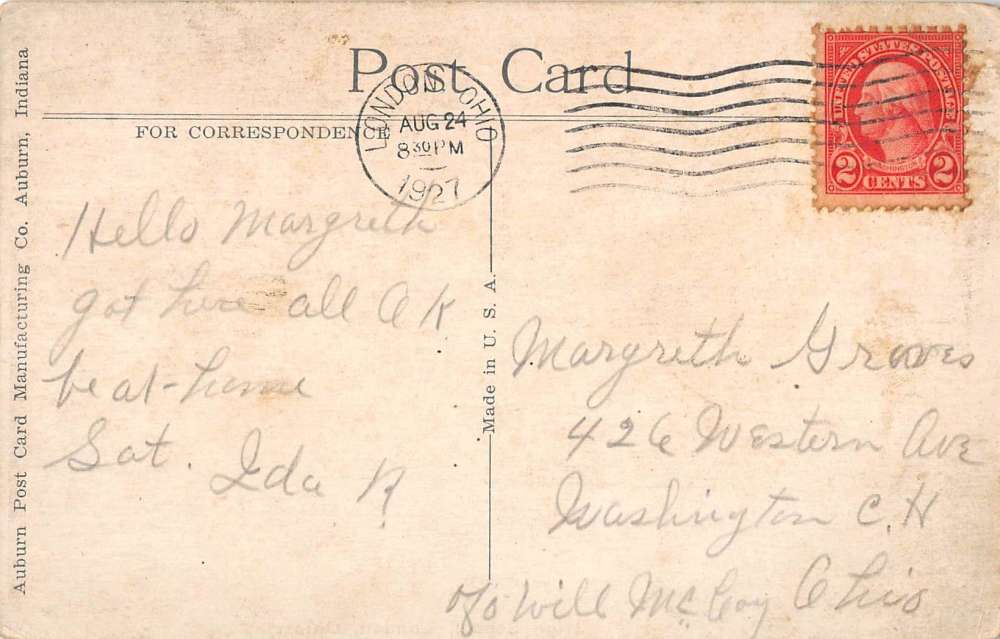 Post Card
FOR CORRESPONDENCE
LONDON, OHIO
AUG 24
8 30 PM
1927
UNITED STATES POSTAGE
WASHINGTON
2 CENTS 2
Hello Margreth
got here all OK
be at-home
Sat. Ida R
Margreth Groves
426 Western Ave
Washington C. H
c/o Will McCoy Ohio
Made in U. S. A.
Auburn Post Card Manufacturing Co. Auburn, Indiana